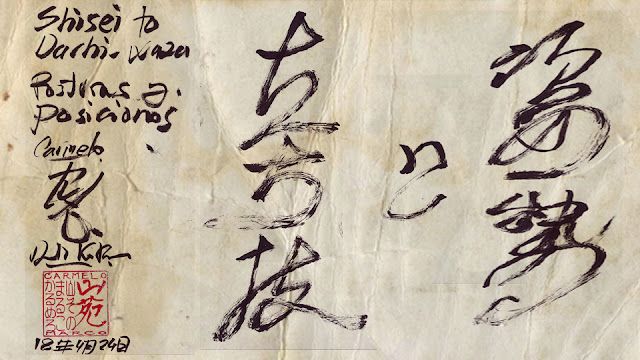 姿勢
と
立ち技
Shisei to
Dachi-waza
Posturas y
posiciones
Carmelo
CARMELO
山苑
かるめろ
MARCO
18年4月24日